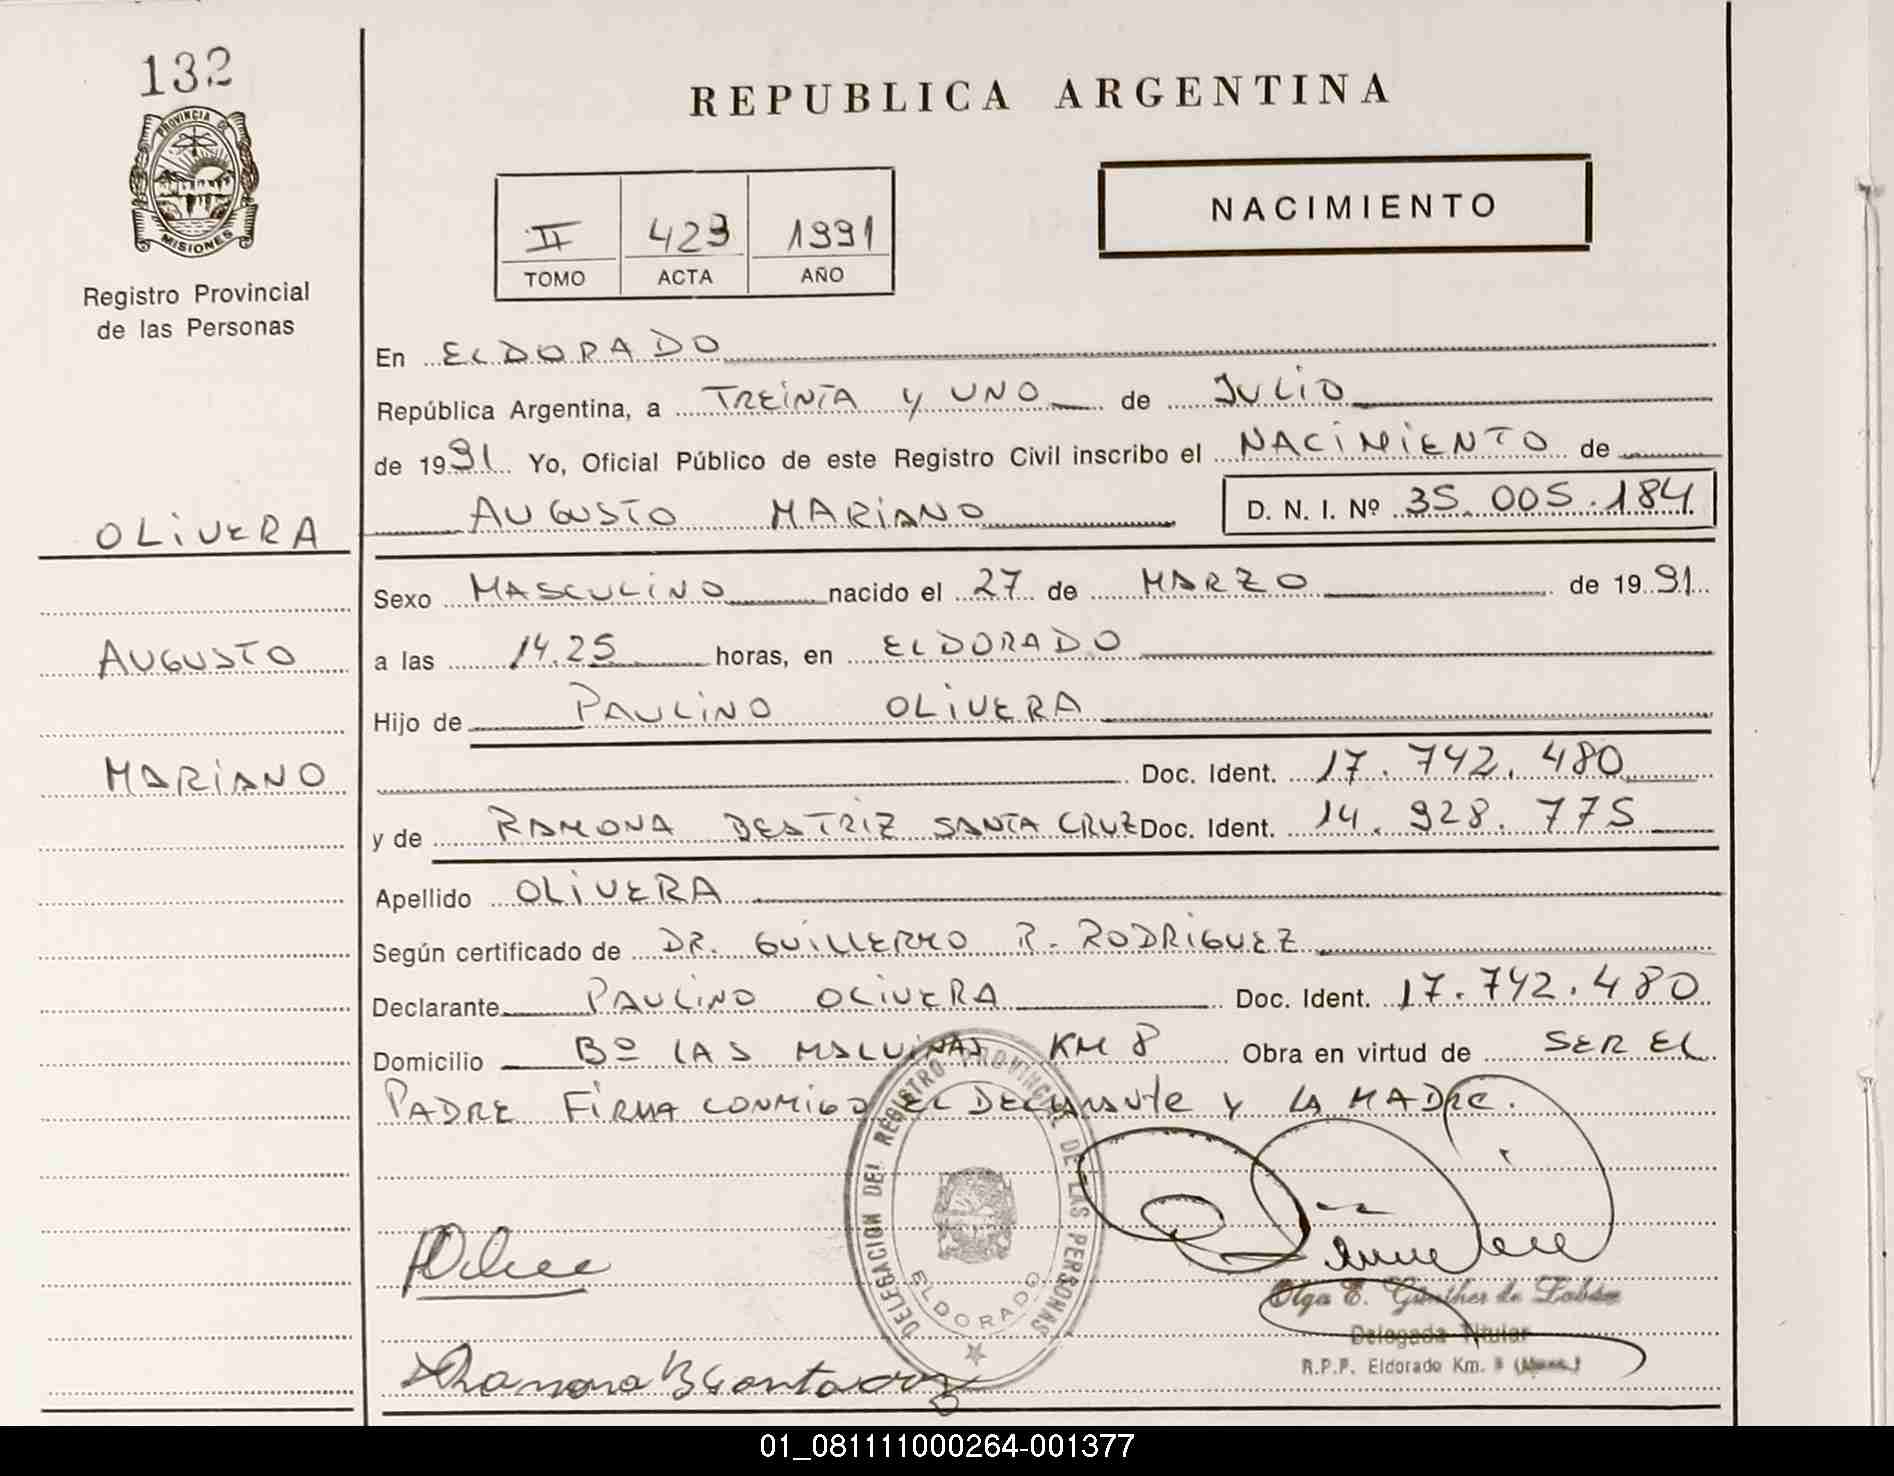 132
PROVINCIA DE
MISIONES
Registro Provincial
de las Personas
OLIVERA
AUGUSTO
MARIANO
REPUBLICA ARGENTINA
II 423 1991
TOMO ACTA AÑO
NACIMIENTO
En ELDORADO
República Argentina, a TREINTA Y UNO de JULIO
de 1991 Yo, Oficial Público de este Registro Civil inscribo el NACIMIENTO de
AUGUSTO MARIANO D. N. I. Nº 35.005.184
Sexo MASCULINO nacido el 27 de MARZO de 1991
a las 14.25 horas, en ELDORADO
Hijo de PAULINO OLIVERA
Doc. Ident. 17.742.480
y de RAMONA BEATRIZ SANTA CRUZ Doc. Ident. 14.928.775
Apellido OLIVERA
Según certificado de DR. GUILLERMO R. RODRIGUEZ
Declarante PAULINO OLIVERA Doc. Ident. 17.742.480
Domicilio Bº LAS MALVINAS KM 8 Obra en virtud de SER EL
PADRE FIRMA CONMIGO EL DECLARANTE Y LA MADRE.
DELEGACION DEL REGISTRO PROVINCIAL DE LAS PERSONAS
ELDORADO
Olga E. Günther de
Delegada Titular
R.P.P. Eldorado Km.
Ramona B Santa Cruz
01_081111000264-001377